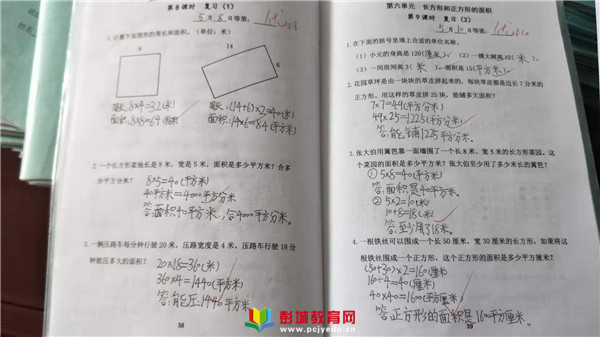 第8课时 复习（1）
5月8日等第:
1.计算下面图形的周长和面积。（单位：米）
8
14
6
周长:8×4=32(米)
面积:8×8=64
周长:(14+6)×2=40(米)
面积:14×6=84(平方米)
2.一个长方形菜地长是8米，宽是5米，面积是多少平方米？合多
少平方分米？
8×5=40(平方米)
40平方米=4000平方分米
答:面积40平方米,合4000平方分米。
3.一辆压路车每分钟行驶20米，压路宽度是4米，压路车行驶18分
钟能压多大的面积？
20×18=360(米)
360×4=1440(平方米)
答:能压1440平方米。
38
第六单元 长方形和正方形的面积
第9课时 复习（2）
月 日等第:
1.在下面的括号里填上合适的单位名称。
（1）小元的身高是120(厘米)。（2）一棵大树高12(米)。
（3）一间房间高3(米)，面积是15(平方米)。
2.花园草坪是由一块块的草皮拼起来的，每块草皮都是边长7分米的
正方形。用这样的草皮拼25块，能铺多大面积？
7×7=49(平方分米)
49×25=1225(平方分米)
答:能铺1225平方分米。
3.张大伯用篱笆靠一面墙围了一个长8米，宽5米的长方形菜园。这
个菜园的面积是多少平方米？张大伯至少用了多少米长的篱笆？
①5×8=40(平方米)
答:面积是40平方米。
②5×2=10(米)
10+8=18(米)
答:至少用了18米。
4.一根铁丝可以围成一个长50厘米，宽30厘米的长方形。如果将这
根铁丝围成一个正方形，这个正方形的面积是多少平方厘米？
(50+30)×2=160(厘米)
160÷4=40(厘米)
40×40=1600(平方厘米)
答:正方形的面积是1600平方厘米。
39
彭城教育网
www.pcjyedu.cn